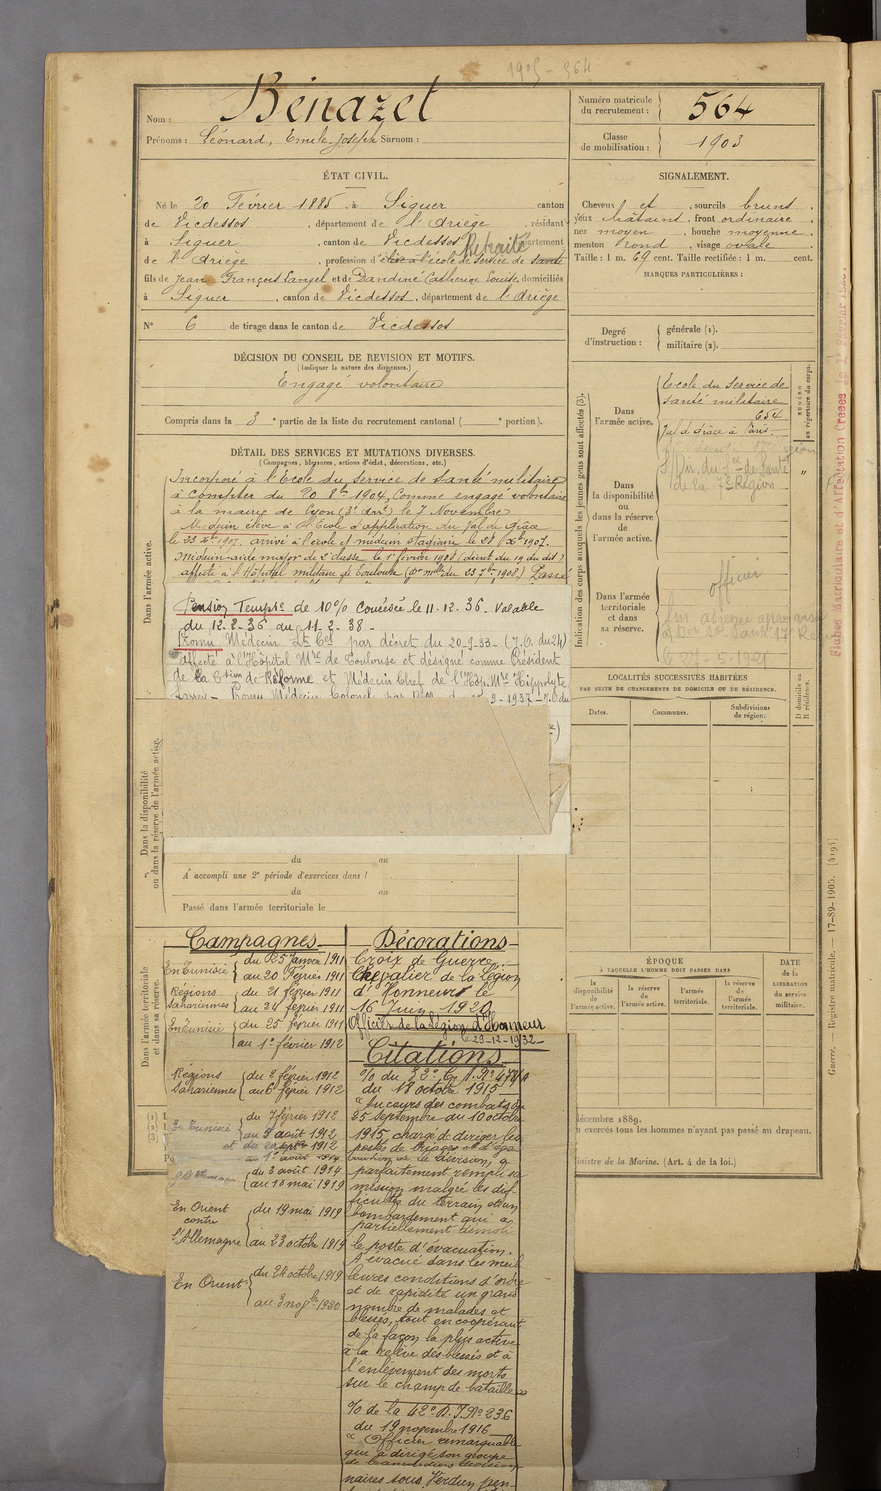 1905 - 564
Nom : Bénazet
Prénoms : Léonard, Emile, Joseph Surnom :
Numéro matricule du recrutement : 564
Classe de mobilisation : 1903
ÉTAT CIVIL.
Né le 20 Février 1885, à Siguer canton
de Vicdessos, département de l'Ariège, résidant
à Siguer, canton de Vicdessos, département
Retraité
de l'Ariège, profession d'élève à l'école de service de santé
fils de Jean François Langel et de Dandine Catherine Louise, domiciliés
à Siguer, canton de Vicdessos, département de l'Ariège
N° 6 de tirage dans le canton de Vicdessos
SIGNALEMENT.
Cheveux et, sourcils bruns.
yeux châtains, front ordinaire
nez moyen, bouche moyenne
menton rond, visage ovale
Taille : 1 m. 69 cent. Taille rectifiée : 1 m. cent.
MARQUES PARTICULIÈRES :
Degré d'instruction : générale (1).
militaire (2).
DÉCISION DU CONSEIL DE REVISION ET MOTIFS.
(Indiquer la nature des dispenses.)
Engagé volontaire
Compris dans la 3e partie de la liste du recrutement cantonal ( e portion).
DÉTAIL DES SERVICES ET MUTATIONS DIVERSES.
(Campagnes, blessures, actions d'éclat, décorations, etc.)
Dans l'armée active.
Incorporé à l'Ecole du Service de Santé militaire
à compter du 20 8bre 1904, comme engagé volontaire
à la mairie de Lyon (3e arrt) le 7 Novembre
Médecin élève à l'Ecole d'application du Val de Grâce
arrivé à l'école et médecin stagiaire le
Médecin-aide major de 2e classe le 1er février 1908 (décret du 19 du dit)
affecté à l'Hôpital militaire de Toulouse Passé
Pension Tempre de 10% concédée le 11-12-36. Valable
du 12-2-36 au 11-2-38 -
Promu Médecin Lt Cel par décret du 20-9-33 - (J.O. du 24)
affecté à l'Hôpital Mre de Toulouse et désigné comme Président
de la Csion de Réforme et Médecin Chef de l'Hôp. Mre Hippolyte
Larrey - Promu Médecin Colonel par
2-1937 - J.O du
Dans la disponibilité
ou dans la réserve de l'armée active.
du au
A accompli une 2e période d'exercices dans l
du au
Passé dans l'armée territoriale le
Dans l'armée territoriale
et dans sa réserve.
Indication des corps auxquels les jeunes gens sont affectés (3).
Dans l'armée active.
Ecole du Service de
santé militaire
654
Val de Grâce à Paris
NUMÉRO
au répertoire du corps.
Dans la disponibilité
ou dans la réserve de l'armée active.
de la 7e Région
Dans l'armée territoriale
et dans sa réserve.
officier
LOCALITÉS SUCCESSIVES HABITÉES
PAR SUITE DE CHANGEMENTS DE DOMICILE OU DE RÉSIDENCE.
Dates.
Communes.
Subdivisions de région.
D domicile ou R résidence.
ÉPOQUE
À LAQUELLE L'HOMME DOIT PASSER DANS
la disponibilité de l'armée active.
la réserve de l'armée active.
l'armée territoriale.
la réserve de l'armée territoriale.
DATE de la LIBÉRATION du service militaire.
décembre 1889.
n exercés tous les hommes n'ayant pas passé au drapeau.
nistre de la Marine. (Art. 4 de la loi.)
Guerre. — Registre matricule. — 17-89-1905. [4194]
Campagnes
En Tunisie du 25 Janvier 1911
au 20 Février 1911
Régions Sahariennes du 21 février 1911
au 24 février 1911
En Tunisie du 25 février 1911
au 1er février 1912
Régions Sahariennes du 2 février 1912
au 6 février 1912
En Tunisie du 7 février 1912
au 9 août 1912
du 3 août 1914
au 18 mai 1919
En Orient contre l'Allemagne du 19 mai 1919
au 23 octobre 1919
En Orient du 24 octobre 1919
au 3 novbre 1920
Décorations
Croix de Guerre.
Chevalier de la Légion
d'Honneur le
16 Juin 1920
Officier de la Légion d'Honneur
29-12-1932
Citations
du 18 octobre 1915
"Au cours des combats du
25 septembre au 10 octobre
1915, chargé de diriger les
postes de
de la division, a
parfaitement rempli sa
mission malgré les dif-
ficultés du terrain et un
bombardement qui a
partiellement démoli
le poste d'évacuation.
A évacué dans les meil
leures conditions d'ordre
et de rapidité un grand
nombre de malades et
blessés, tout en coopérant
de la façon la plus active
à la relève des blessés et à
l'enlèvement des morts
sur le champ de bataille"
% de la 42e D.I. No 236
du 19 novembre 1916
"Officier remarquable
qui a dirigé son groupe
de brancardiers division-
naires sous Verdun pen-